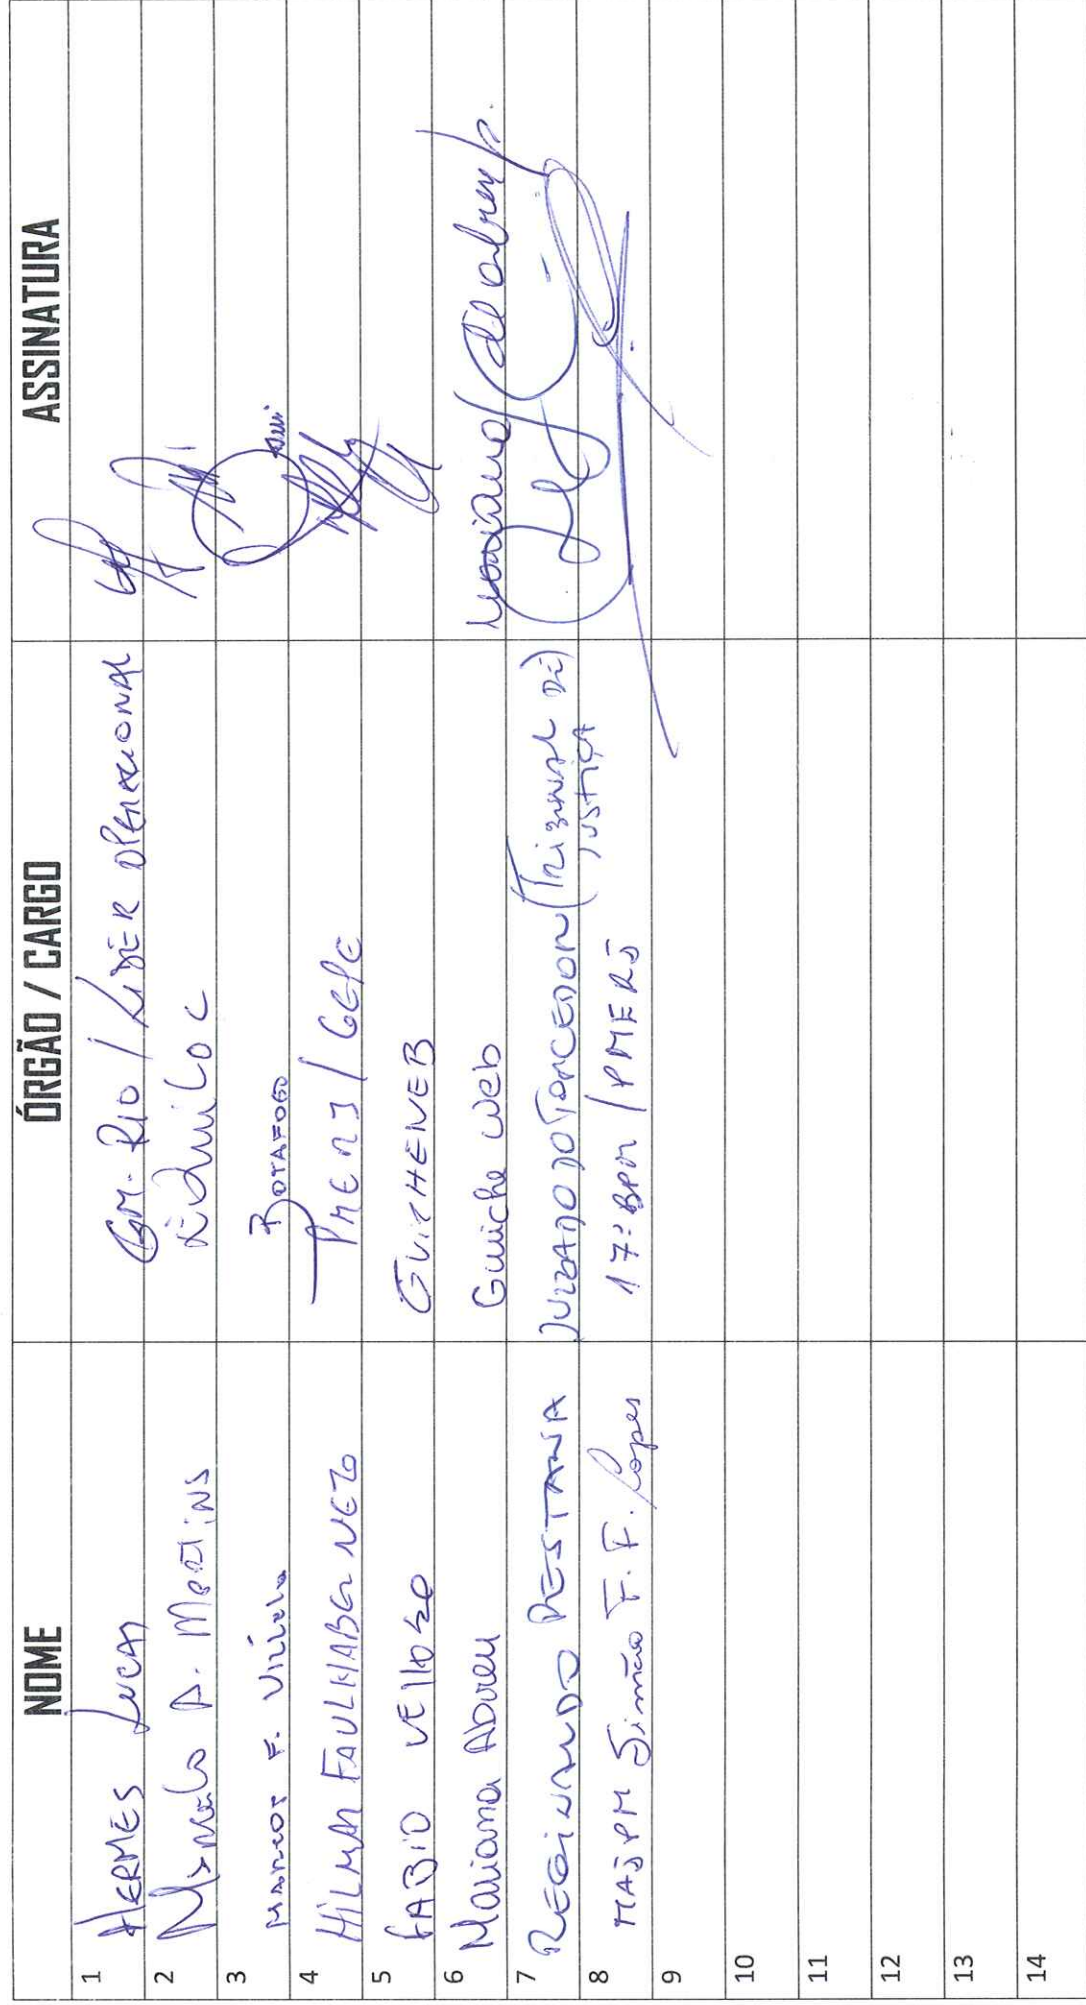 NOME ÓRGÃO / CARGO ASSINATURA
1 HERMES LUCAS GM-RIO / LIDER OPERACIONAL
2 Marcelo A. Martins
3 MARCOS F. Vieira BOTAFOGO
4 HILMAR FAULHABER NETO PMERJ / GEPE
5 FABIO VELLOSO GUICHEWEB
6 Mariana Abreu Guiche Web Mariana de Abreu
7 REGINALDO PESTANA JUIZADO DO TORCEDOR (TRIBUNAL DE
JUSTIÇA
8 MAJ PM Simão F. F. Lopes 17º BPM / PMERJ
9
10
11
12
13
14